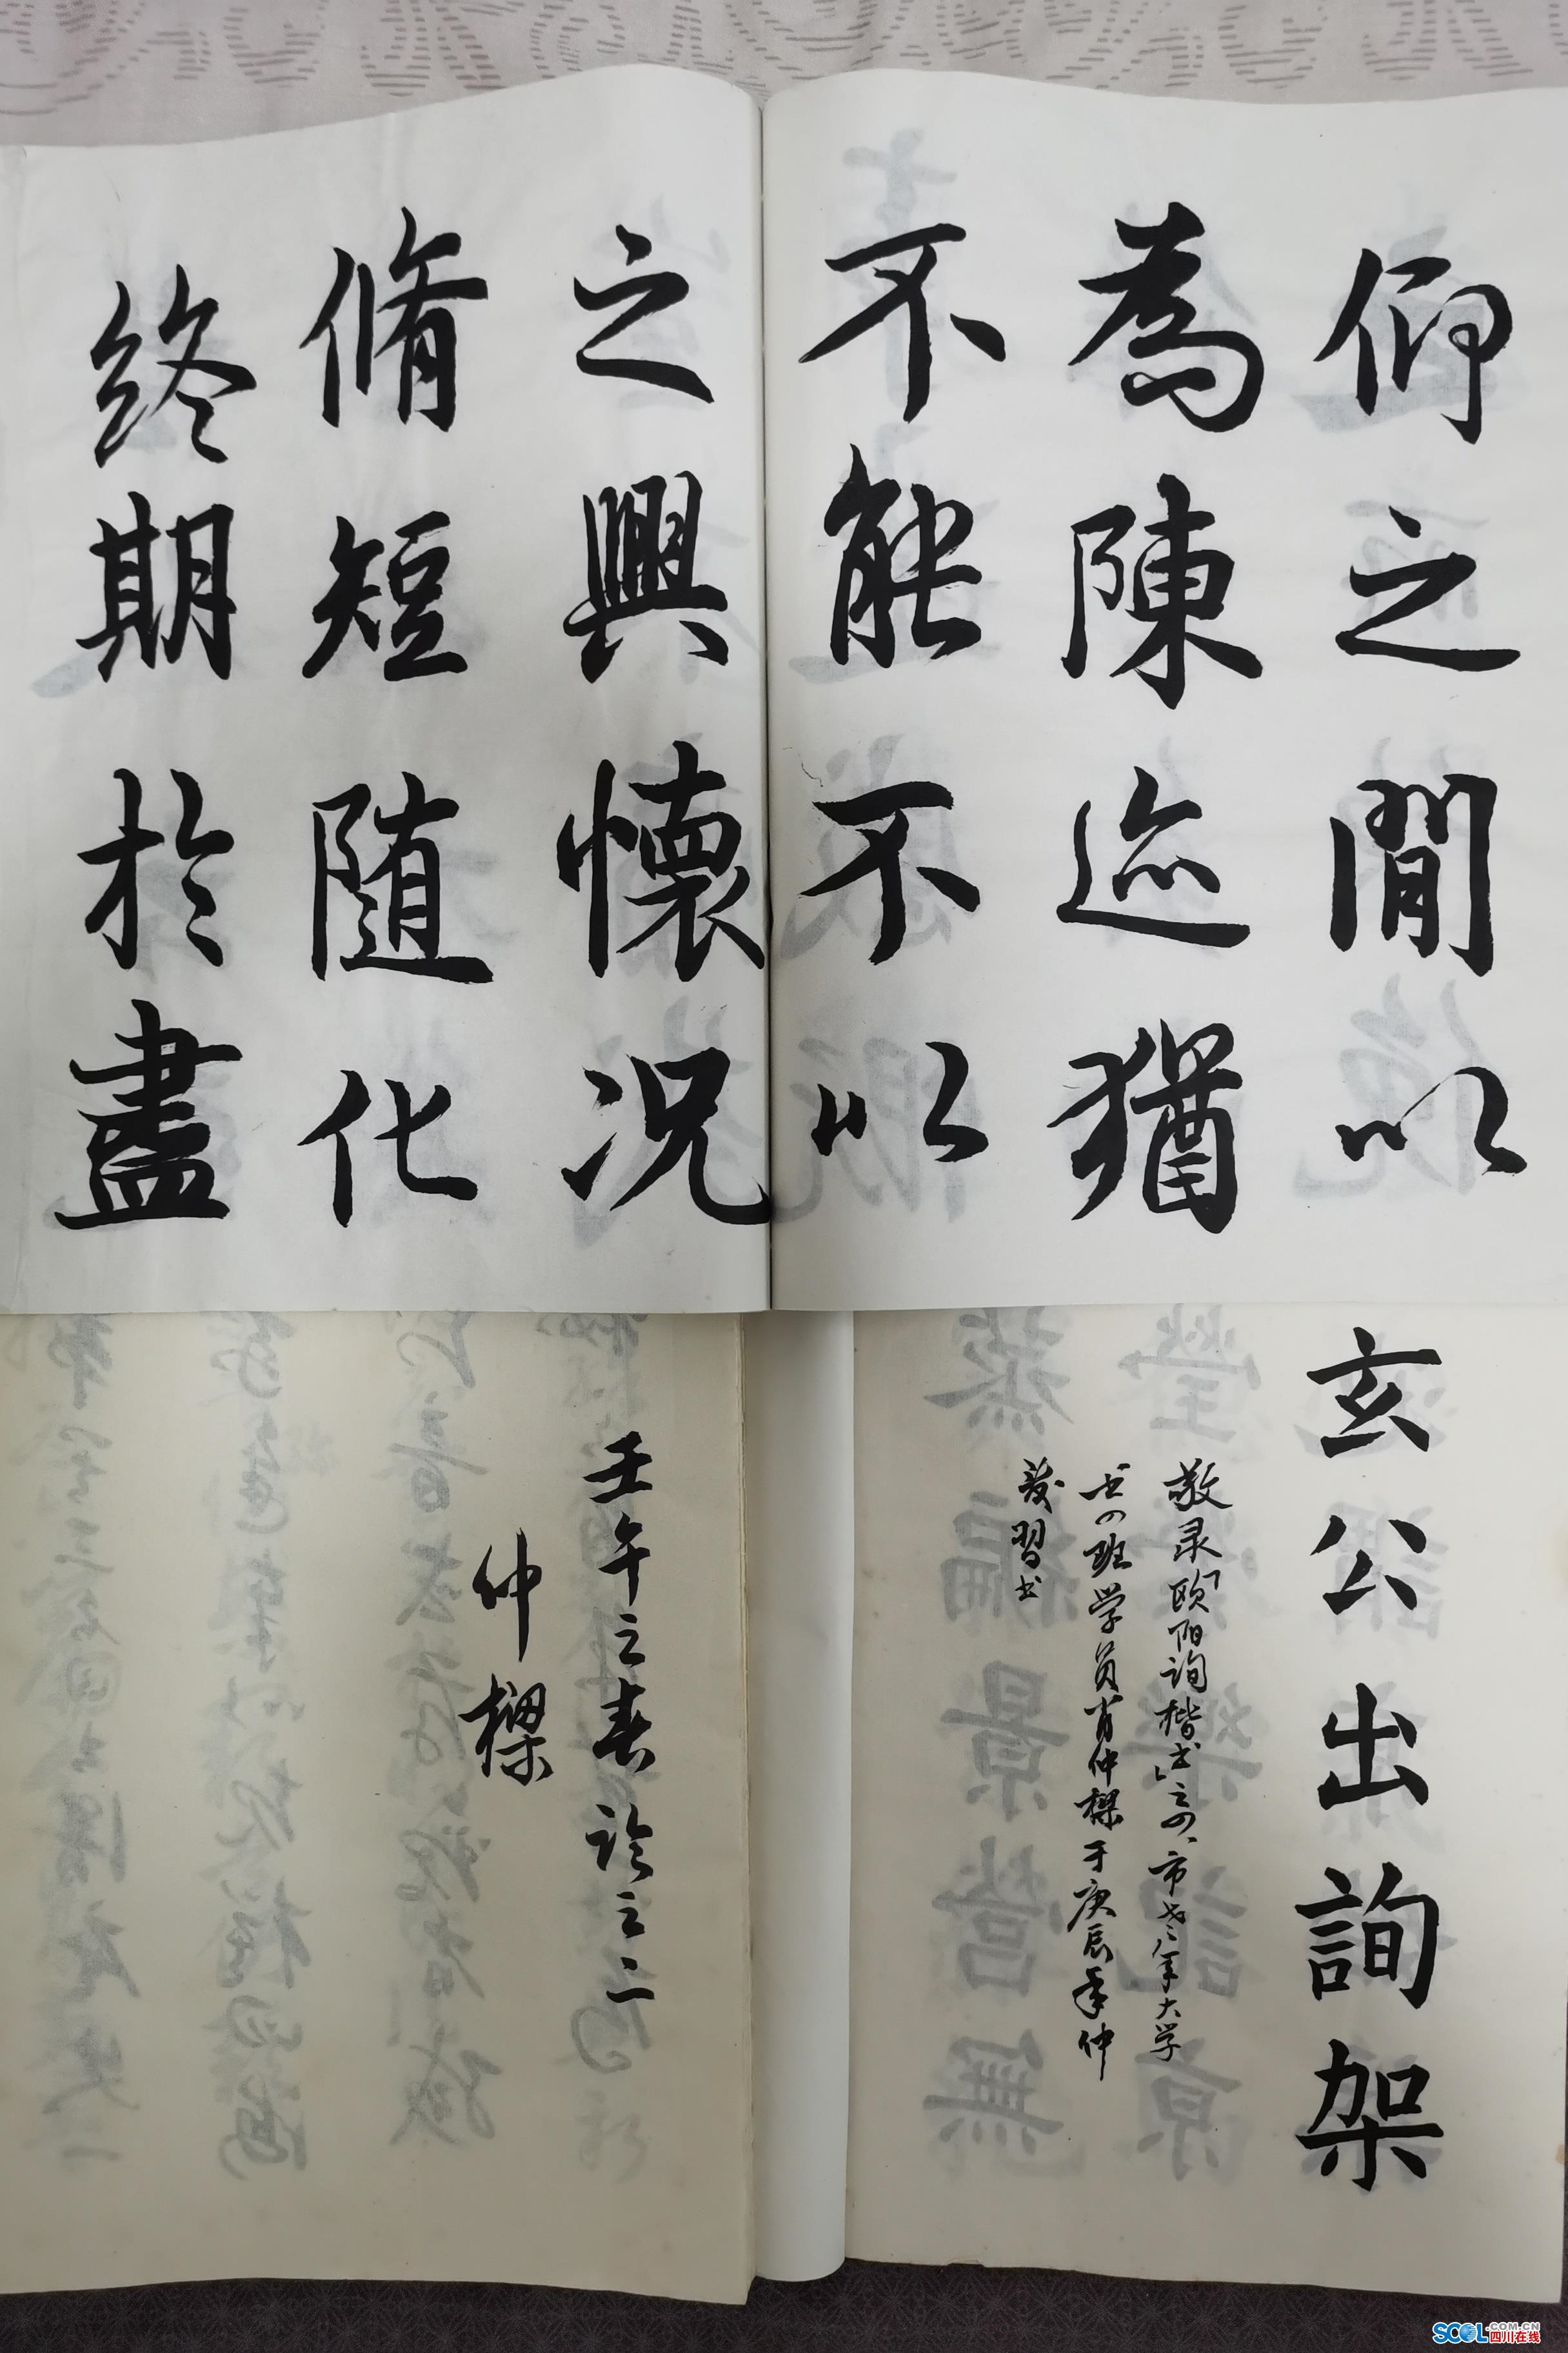 仰之間以
為陳迹猶
不能不以
之興懷況
脩短随化
終期於盡
玄公出詢架
敬录「欧阳詢楷书」 市老年大学
书 班学员肖仲樑于庚辰年仲
習书
壬午之春
仲樑
SCOL.COM.CN
四川在线